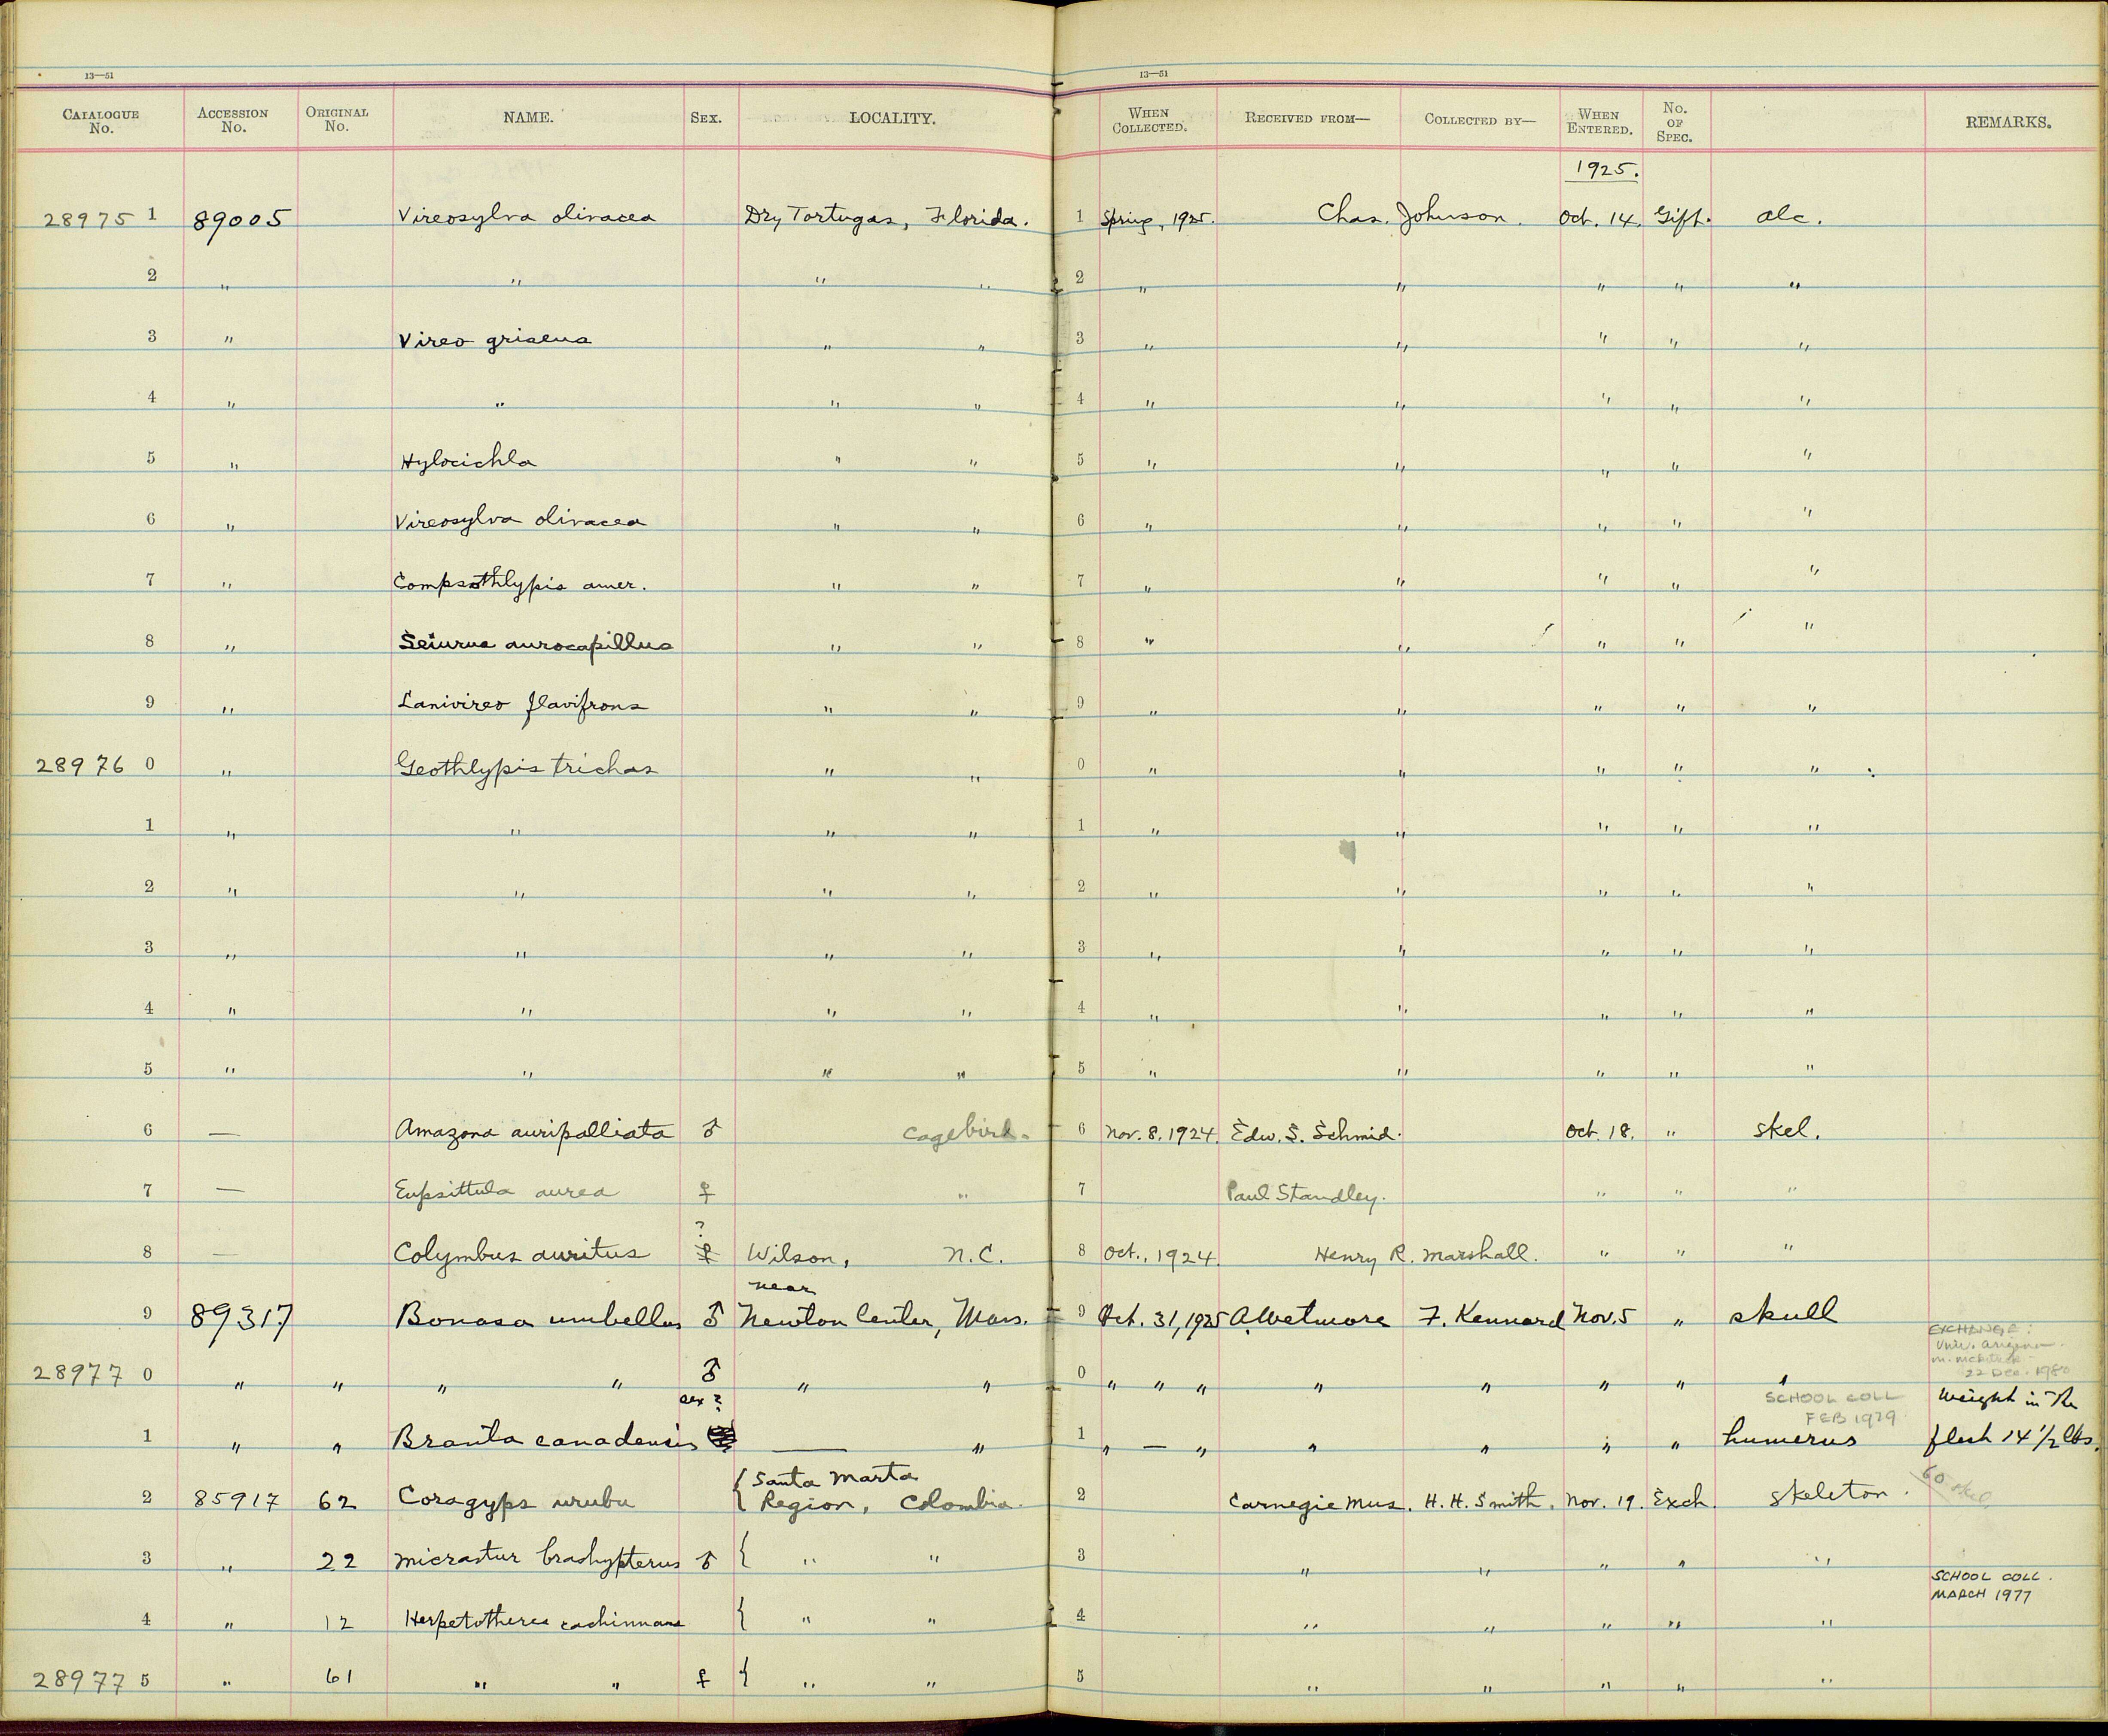 13—51 13—51
CATALOGUE No. ACCESSION No. ORIGINAL No. NAME. SEX. LOCALITY. WHEN COLLECTED. RECEIVED FROM— COLLECTED BY— WHEN ENTERED. No. OF SPEC. REMARKS.
1925.
28975 1 89005 Vireosylva olivacea Dry Tortugas, Florida. 1 Spring, 1925. Chas. Johnson. Oct. 14. Gift. alc.
2 " " " " 2 " " " " "
3 " Vireo griseus " " 3 " " " " "
4 " " " " 4 " " " " "
5 " Hylocichla " " 5 " " " " "
6 " Vireosylva olivacea " " 6 " " " " "
7 " Compsothlypis amer. " " 7 " " " " "
8 " Seiurus aurocapillus " " 8 " " " " "
9 " Lanivireo flavifrons " " 9 " " " " "
28976 0 " Geothlypis trichas " " 0 " " " " "
1 " " " " 1 " " " " "
2 " " " " 2 " " " " "
3 " " " " 3 " " " " "
4 " " " " 4 " " " " "
5 " " " " 5 " " " " "
6 — Amazona auripalliata ♂ cagebird. 6 Nov. 8. 1924. Edw. S. Schmid. Oct. 18. " skel.
7 — Eupsittula aurea ♀ " 7 Paul Standley. " " "
?
8 — Colymbus auritus ♀ Wilson, N.C. 8 Oct., 1924. Henry R. Marshall. " " "
near
9 89317 Bonasa umbellus ♂ Newton Center, Mass. 9 Oct. 31, 1925 A. Wetmore F. Kennard Nov. 5 " skull
EXCHANGE:
Univ.
22 Dec. 1980
28977 0 " " " " ♂ " " 0 " " " " " " " "
sex? SCHOOL COLL Weight in the
FEB 1979
1 " " Branta canadensis — " 1 " — " " " " " humerus flesh 14 1/2 lbs.
{ Santa Marta
2 85917 62 Coragyps urubu Region, Colombia. 2 Carnegie Mus. H. H. Smith. Nov. 19. Exch. skeleton. skel
3 " 22 Micrastur brachypterus ♂ { " " 3 " " " " "
SCHOOL COLL.
MARCH 1977
4 " 12 Herpetotheres cachinnans { " " 4 " " " " "
28977 5 " 61 " " ♀ { " " 5 " " " " "